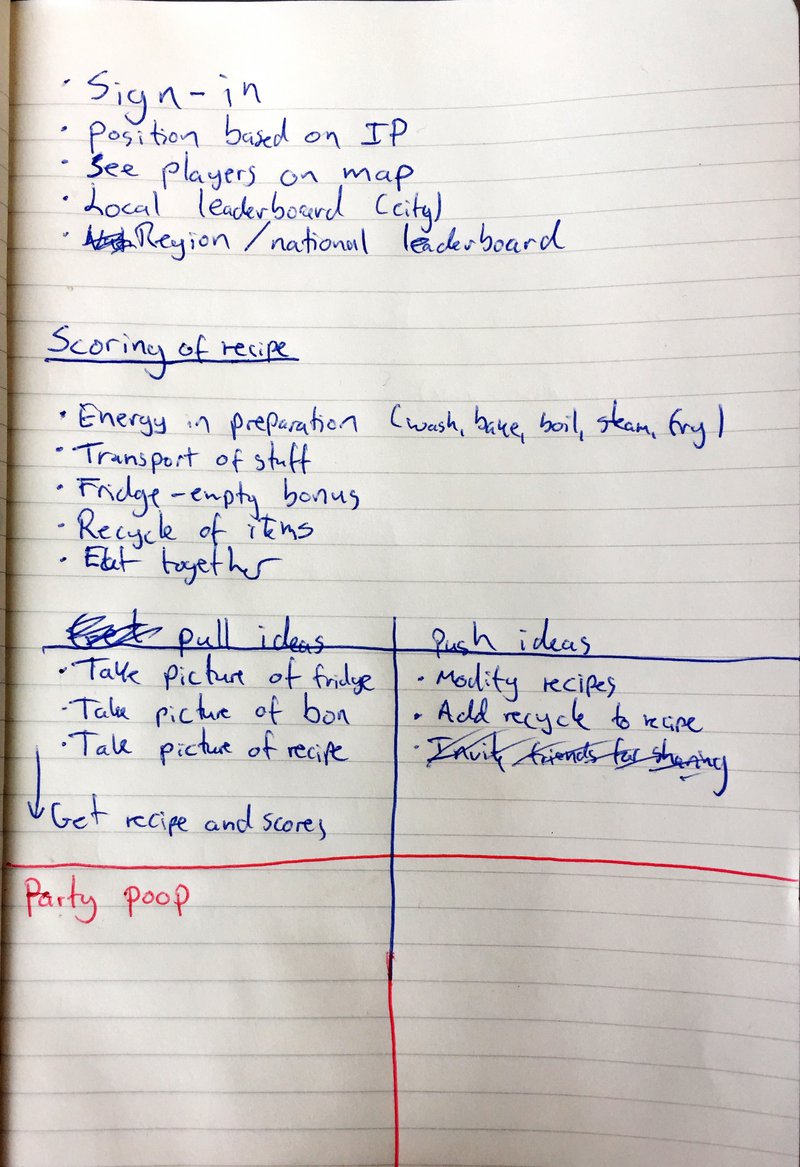 · Sign-in
· Position based on IP
· See players on map
· Local leaderboard (city)
· Region/national leaderboard
Scoring of recipe
· Energy in preparation (wash, bake, boil, steam, fry)
· Transport of stuff
· Fridge-empty bonus
· Recycle of items
· Eat together
pull ideas
· Take picture of fridge
· Take picture of bon
· Take picture of recipe
↓ Get recipe and scores
Push ideas
· Modify recipes
· Add recycle to recipe
· Invite friends for sharing
Party poop